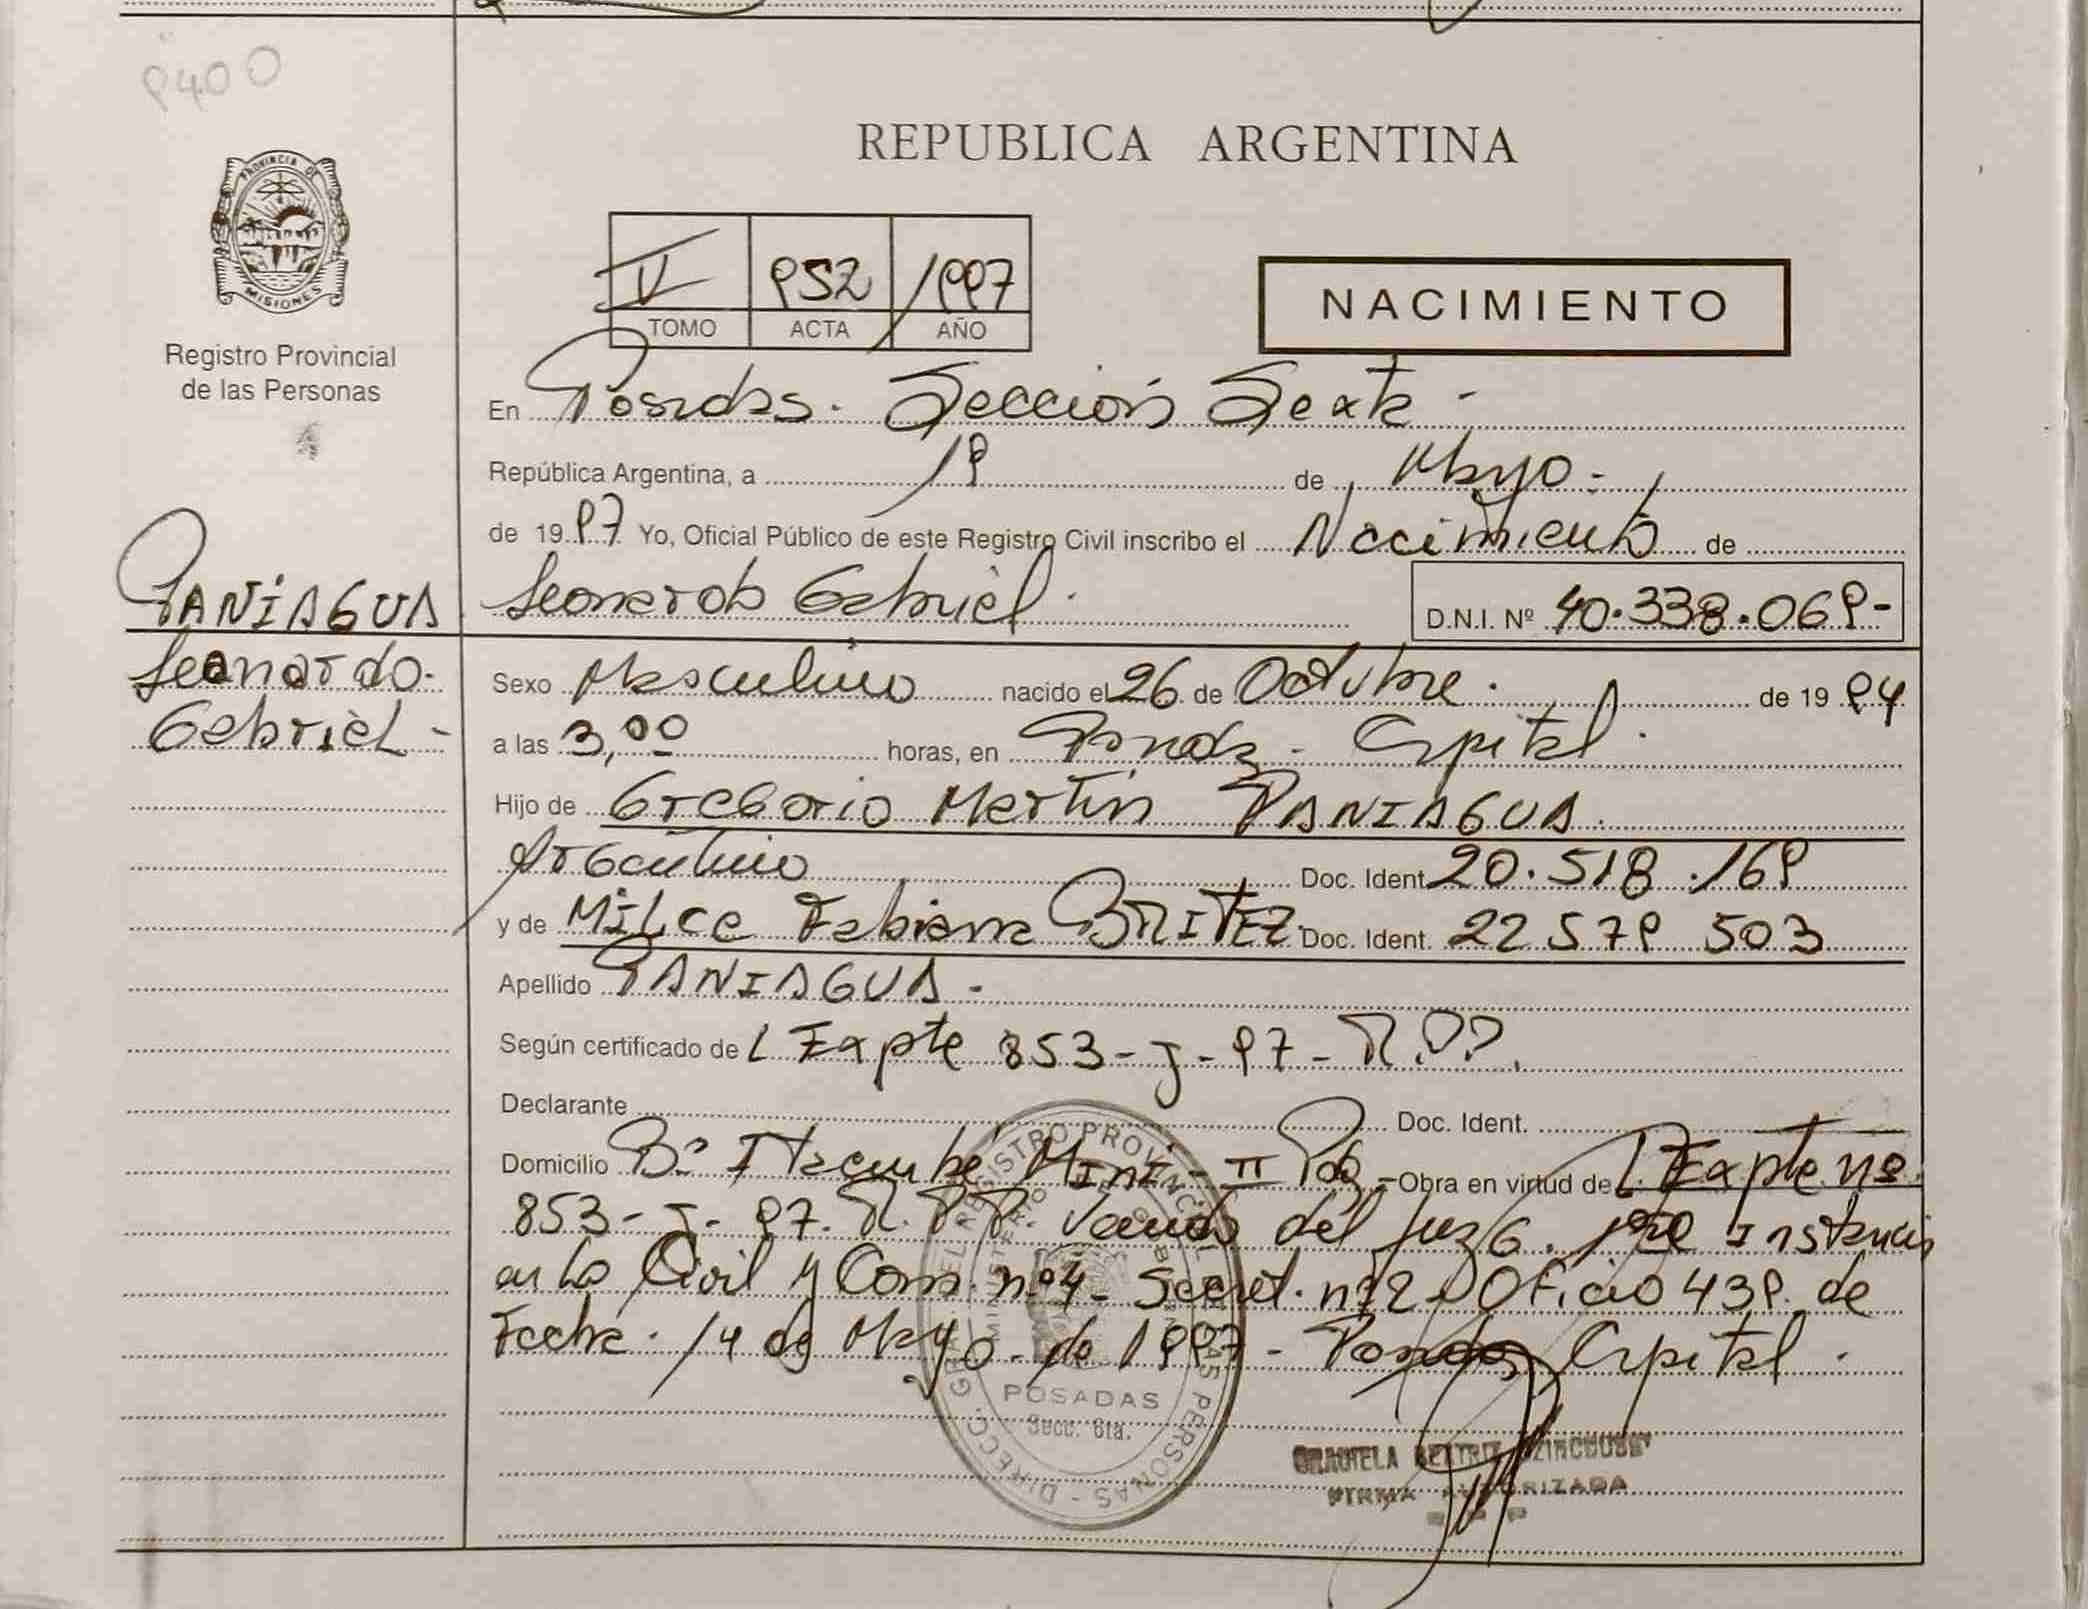 9400
PROVINCIA DE
MISIONES
Registro Provincial
de las Personas
REPUBLICA ARGENTINA
V 952 1997
TOMO ACTA AÑO
NACIMIENTO
En Posadas. Sección Sexta -
República Argentina, a 19 de Mayo.-
de 1997 Yo, Oficial Público de este Registro Civil inscribo el Nacimiento de
PANIAGUA Leonardo Gabriel. D.N.I. Nº 40.338.069-
Leonardo.
Gabriel -
Sexo Masculino nacido el 26 de Octubre. de 1994
a las 3,00 horas, en Posadas - Capital.
Hijo de Gregorio Martin PANIAGUA.
Argentino Doc. Ident. 20.518.169
y de Milce Fabiana BRITEZ. Doc. Ident. 22 579 503
Apellido PANIAGUA -
Según certificado de L Expte 853-J-97-R.P.P.
Declarante Doc. Ident.
Domicilio Bº Itaembé Mini-II Pdas - Obra en virtud de L. Expte nº
853-J-97.R.P.P. del Juzg. 1ra Instancia
en lo Civil y Com. nº4- Secret. nº2 Oficio 439 de
Fecha. 14 de Mayo. de 1997 - Posadas Capital.
DIRECC. GRAL. DEL REGISTRO PROVINCIAL DE LAS PERSONAS
MINISTERIO DE GOBIERNO
POSADAS
Secc. 6ta.
GRACIELA BEATRIZ
FIRMA AUTORIZADA